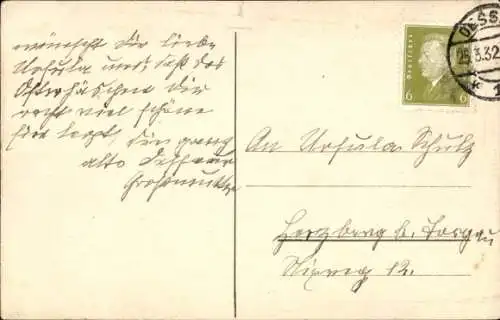 wünscht Dir liebe
Ursula und, daß das
Osterhäschen Dir
recht viel schöne
Eier legt, Dein ganz
alte Dessauer
Großmutter
DESS
25.3.32
* 1
Deutsches Reich
6 6
An Ursula Schulz
Herzberg b. Torgau
12.